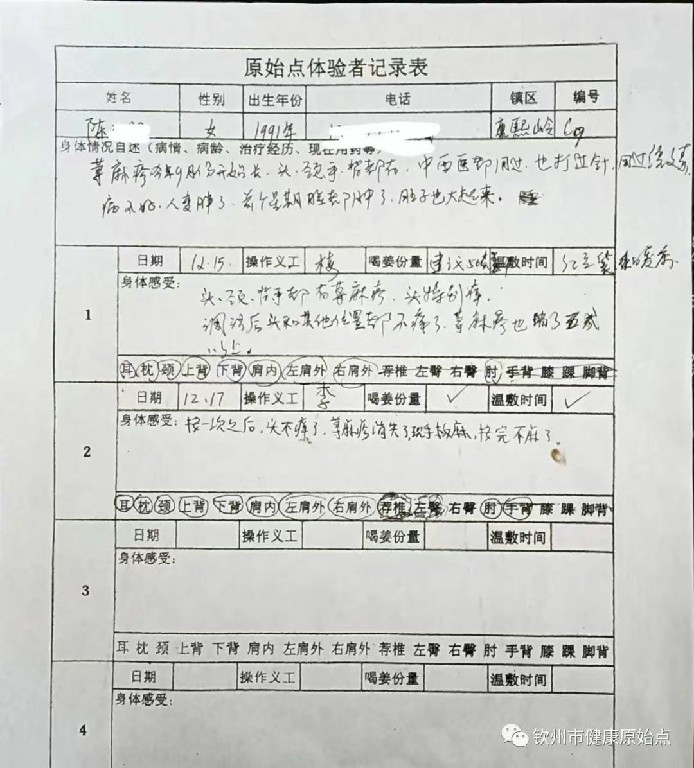 原始点体验者记录表
姓名 性别 出生年份 电话 镇区 编号
陈 女 1991年 康熙岭 C09
身体情况自述（病情、病龄、治疗经历、现在用药等
荨麻疹今年9月份开始长，头、颈、手、背都有，中西医都用过，也打过针，用过
病不好，人变肿了，前个星期脸都肿了，肚子也大起来。
1
日期 12.15 操作义工 梅 喝姜份量 建议50 温敷时间 红豆袋
身体感受：
头、颈、背、手都有荨麻疹，头特别痒。
调法后头和其他位置都不痒了，荨麻疹也缩了五成
以上。
耳 枕 颈 上背 下背 肩内 左肩外 右肩外 荐椎 左臀 右臀 肘 手背 膝 踝 脚背
2
日期 12.17 操作义工 李 喝姜份量 ✓ 温敷时间 ✓
身体感受：按一次之后，头不痒了，荨麻疹消失了，现手板麻，按完不麻了。
耳 枕 颈 上背 下背 肩内 左肩外 右肩外 荐椎 左臀 右臀 肘 手背 膝 踝 脚背
3
日期 操作义工 喝姜份量 温敷时间
身体感受：
耳 枕 颈 上背 下背 肩内 左肩外 右肩外 荐椎 左臀 右臀 肘 手背 膝 踝 脚背
4
日期 操作义工 喝姜份量 温敷时间
身体感受：
钦州市健康原始点